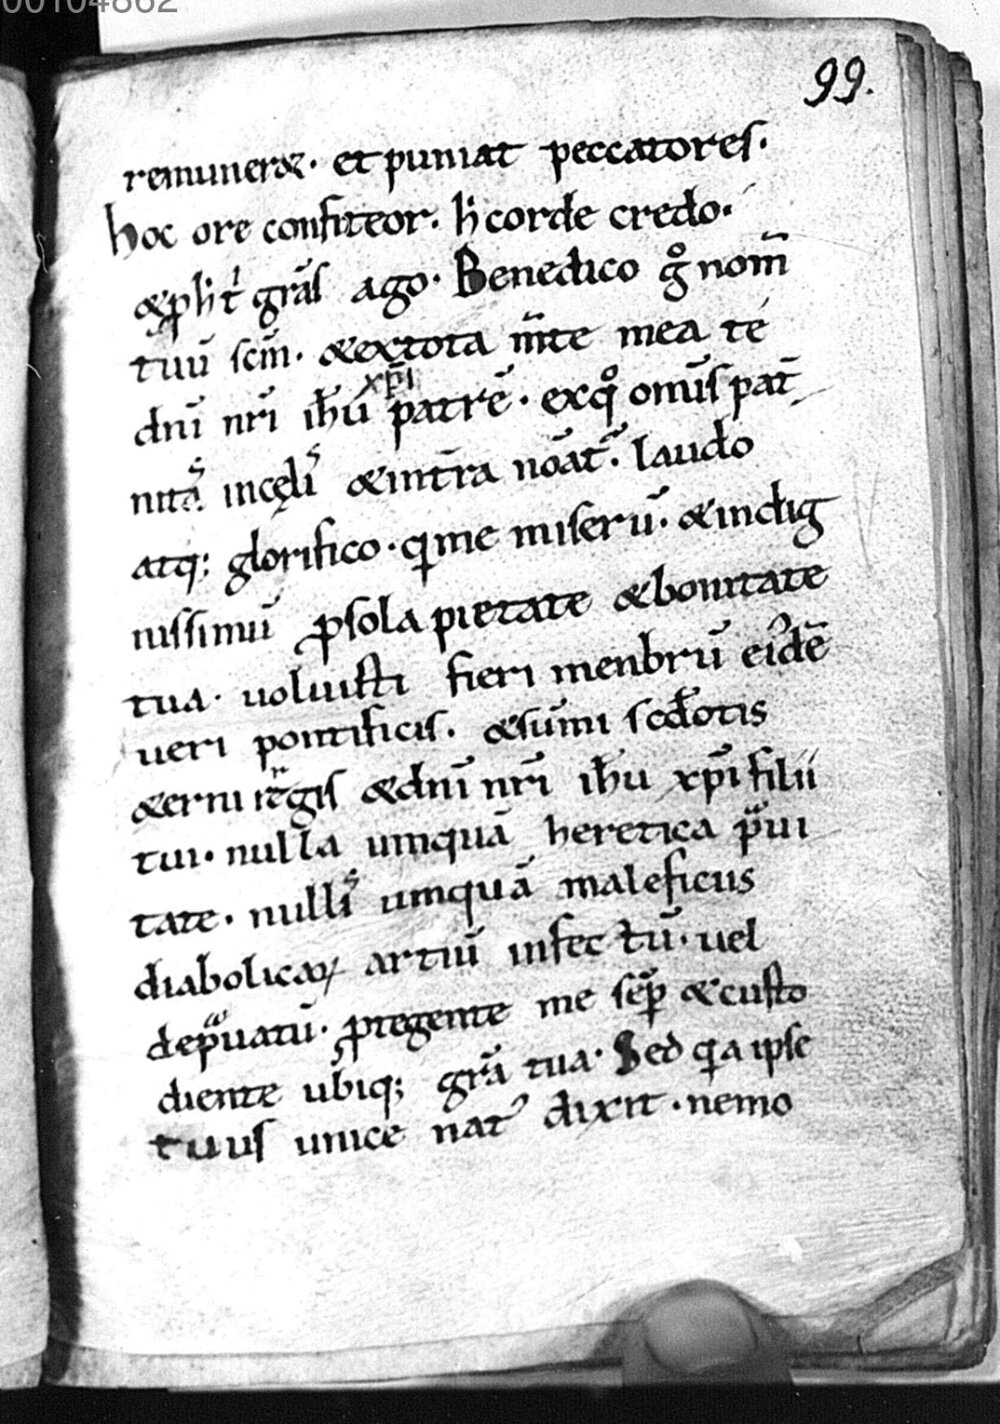 00104862
99.
remuner&. et puniat peccatores.
hoc ore confiteor. h̄ corde credo.
&ꝓ h̄ t̄ grãs ago. Benedico gͦ nom̃
tuũ scm̃. & ex tota m̃te mea te
xp̃i
dñi nr̃i ih̃u patrẽ. ex qͦ omĩs pat̃
nitaͥ in cęliͥ & in tr̃a noãt᷑. laudo
atq; glorifico. q̇ me miserũ. & indig
nissimũ ꝓ sola pietate & bonitate
tua. voluisti fieri menbrũ eiꝰdẽ
veri pontificis. & sum̃i sac̃dotis
&erni regis & dñi nr̃i ih̃u xp̃i filii
tui. nulla umquã heretica p̃ui
tate. nulliͥ umquã maleficus
diabolicaꝝ artiũ infectũ. vel
dep̃uatũ. ꝓtegente me sẽp & custo
diente ubiq; gr̃a tua. Sed q̇a ipse
tuus unice nat᷑ dixit. nemo